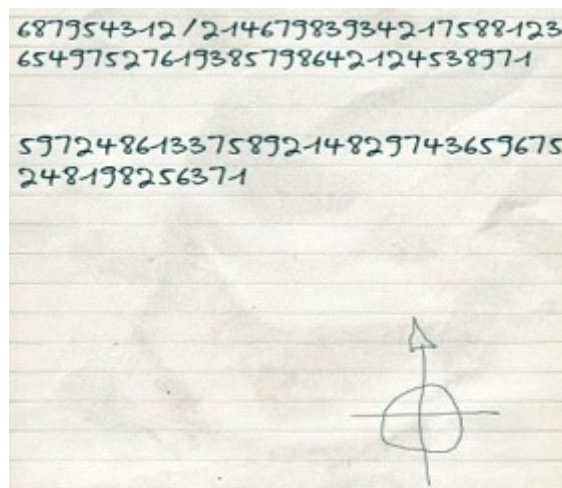 687954312/21467983934217588123
65497527619385798642124538971
59724861337589214829743659675
248198256371